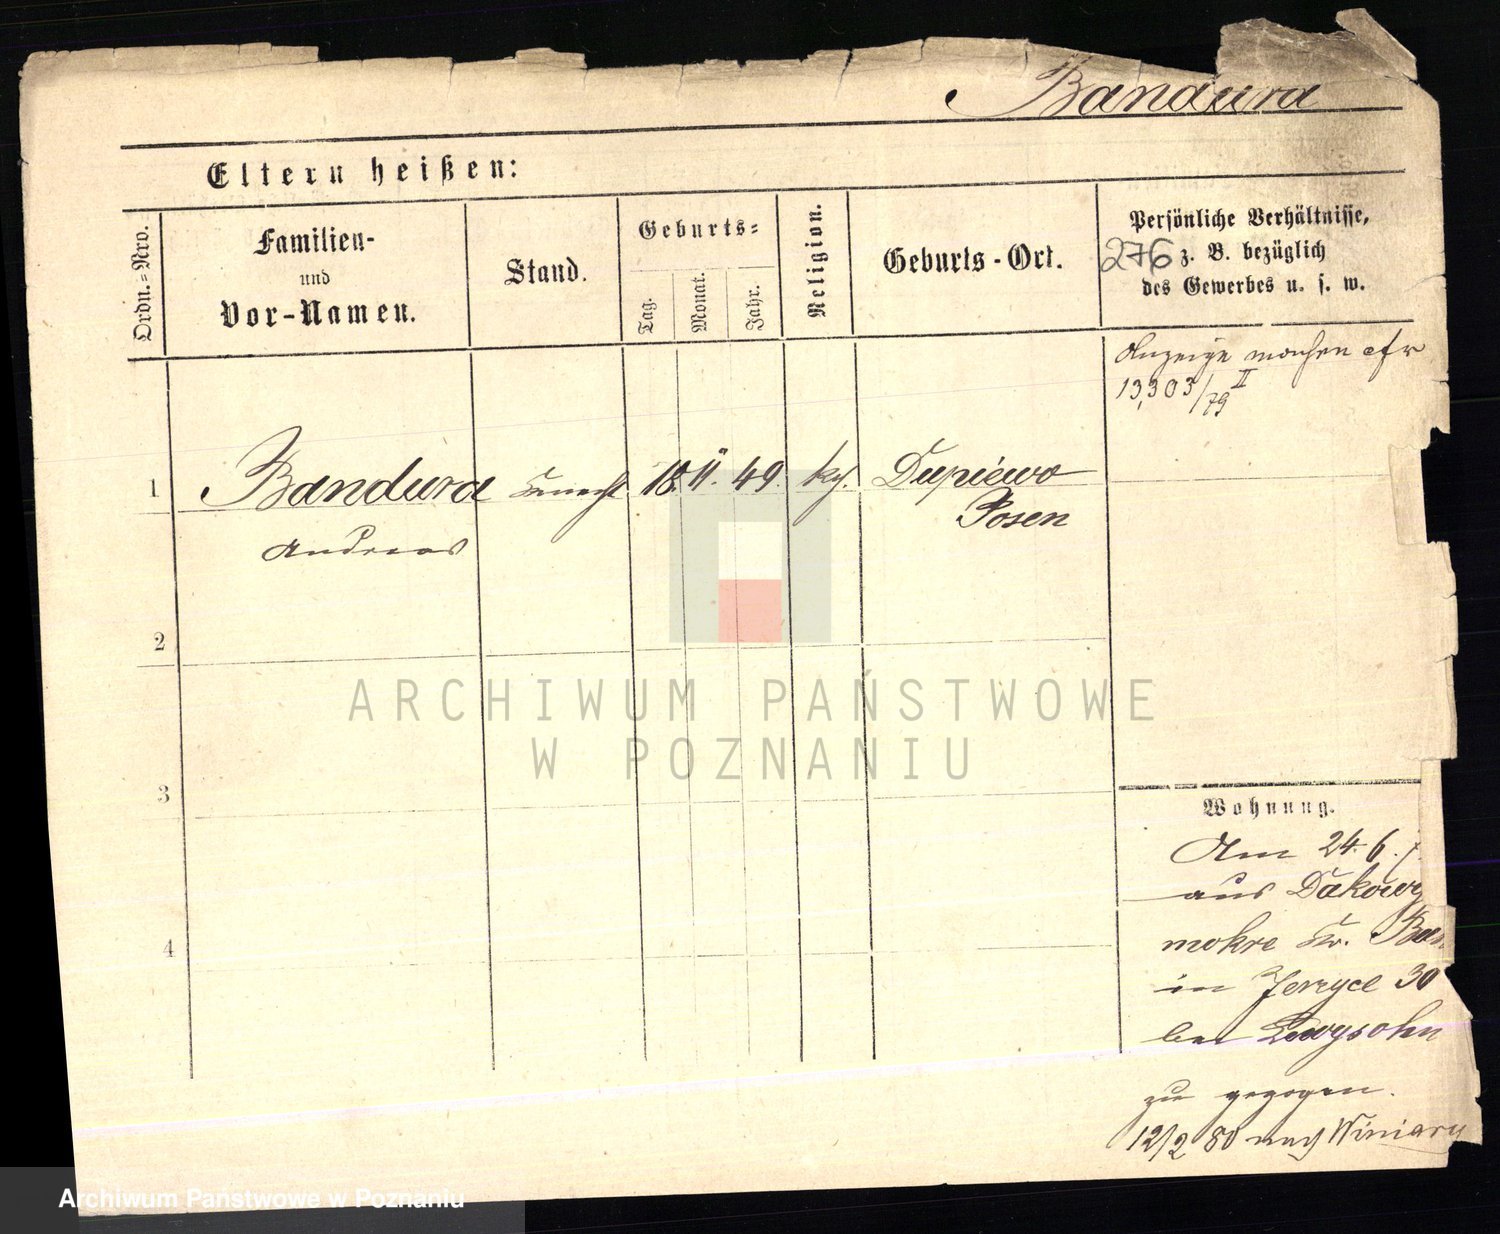 Bandura
Eltern heißen:
Ordn.=Nro.
Familien-
und
Vor-Namen.
Stand.
Geburts=
Tag.
Monat.
Jahr.
Religion.
Geburts-Ort.
Persönliche Verhältnisse,
276 z. B. bezüglich
des Gewerbes u. s. w.
Anzeige machen cfr
13,303/79 II
1 Bandura Knecht 18. 11. 49 kg. Dupiewo
Posen
Andreas
2
3
4
Wohnung.
Am 24. 6.
aus Dakowy
mokre Kr.
in Jerzyce 30
bei Lewysohn
zu gezogen.
12/2 80 nach Winiary
ARCHIWUM PAŃSTWOWE
W POZNANIU
Archiwum Państwowe w Poznaniu